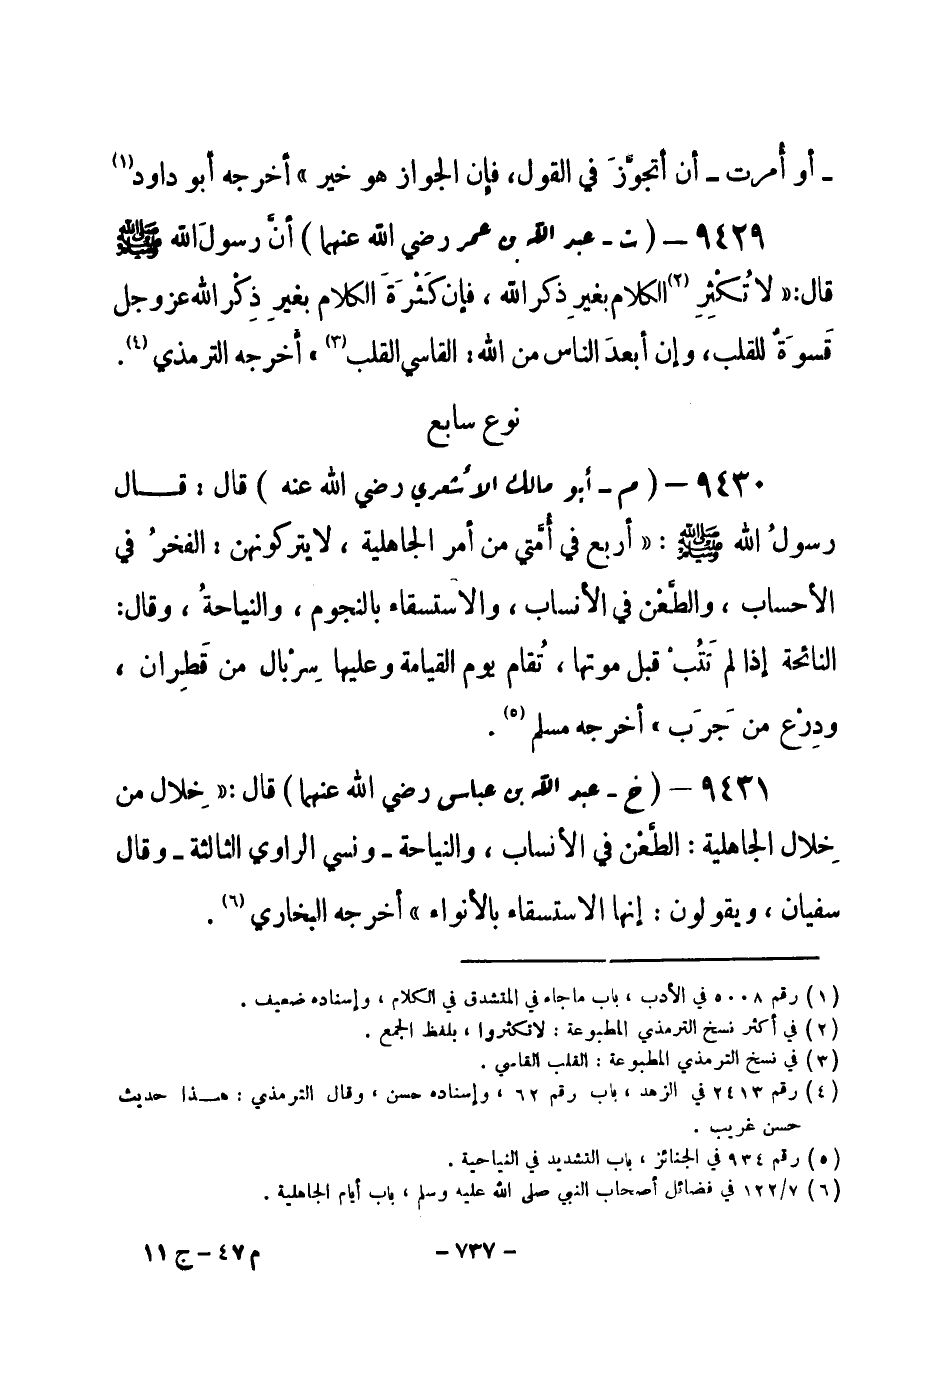 ـ أو أُمرت ـ أن أتجوَّزَ في القول، فإن الجواز هو خير » أخرجه أبو داود(١)
٩٤٢٩ – ( ت ـ عبد الله بن عمر رضي الله عنهما ) أنَّ رسولَ الله ﷺ
قال: « لا تُكْثِرِ (٢) الكلام بغيرِ ذكر الله ، فإن كَثْرَةَ الكلام بغيرِ ذِكْر الله عز وجل
قَسوَةٌ للقلب، وإن أبعدَ الناس من الله : القاسي القلب(٣) » أخرجه الترمذي (٤).
نوع سابع
٩٤٣٠ – ( م ـ أبو مالك الأشعري رضي الله عنه ) قال : قــال
رسولُ الله ﷺ : « أربع في أُمَّتي من أمر الجاهلية ، لا يتركونهن : الفخرُ في
الأحساب ، والطَّعْن في الأنساب ، والاستسقاء بالنجوم ، والنياحةُ ، وقال:
النائحة إذا لم تَتُبْ قبل موتها ، تُقام يوم القيامة وعليها سِرْبال من قَطِران ،
ودِرْع من جَرَب » أخرجه مسلم (٥) .
٩٤٣١ – ( خ ـ عبد الله بن عباس رضي الله عنهما ) قال : « خِلال من
خِلال الجاهلية : الطَّعْن في الأنساب ، والنياحة ـ ونسي الراوي الثالثة ـ وقال
سفيان ، ويقولون : إنها الاستسقاء بالأنواء » أخرجه البخاري (٦) .
(١) رقم ٥٠٠٨ في الأدب ، باب ماجاء في المتشدق في الكلام ، وإسناده ضعيف .
(٢) في أكثر نسخ الترمذي المطبوعة : لاتكثروا ، بلفظ الجمع .
(٣) في نسخ الترمذي المطبوعة : القلب القاسي .
(٤) رقم ٢٤١٣ في الزهد ، باب رقم ٦٢ ، وإسناده حسن ، وقال الترمذي : هــذا حديث
حسن غريب .
(٥) رقم ٩٣٤ في الجنائز ، باب التشديد في النياحية .
(٦) ١٢٢/٧ في فضائل أصحاب النبي صلى الله عليه وسلم ، باب أيام الجاهلية .
– ٧٣٧ –
م ٤٧ – ج ١١